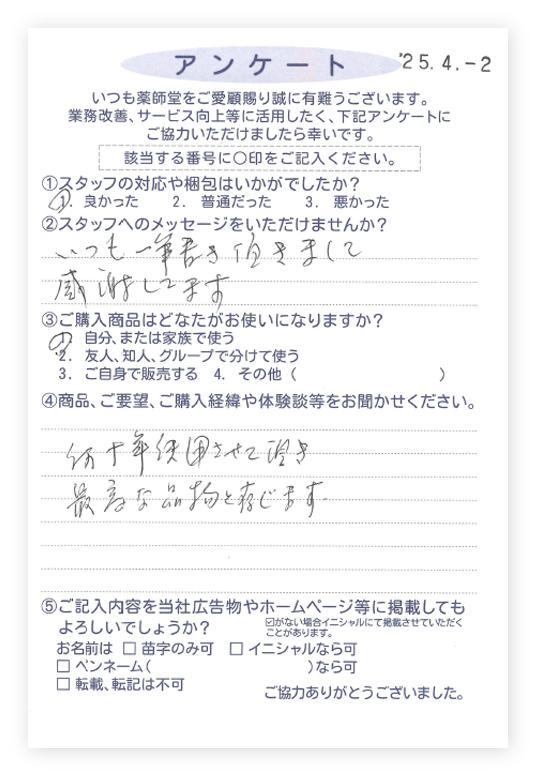 アンケート
'25.4.-2
いつも薬師堂をご愛顧賜り誠に有難うございます。
業務改善、サービス向上等に活用したく、下記アンケートに
ご協力いただけましたら幸いです。
該当する番号に〇印をご記入ください。
①スタッフの対応や梱包はいかがでしたか?
1. 良かった 2. 普通だった 3. 悪かった
②スタッフへのメッセージをいただけませんか?
いつも一筆書き頂きまして
感謝してます
③ご購入商品はどなたがお使いになりますか?
1. 自分、または家族で使う
2. 友人、知人、グループで分けて使う
3. ご自身で販売する 4. その他( )
④商品、ご要望、ご購入経緯や体験談等をお聞かせください。
何十年使用させて頂き
最高な品物と存じます.
⑤ご記入内容を当社広告物やホームページ等に掲載しても
よろしいでしょうか?
☑がない場合イニシャルにて掲載させていただく
ことがあります。
お名前は □ 苗字のみ可 □ イニシャルなら可
□ ペンネーム( )なら可
□ 転載、転記は不可
ご協力ありがとうございました。